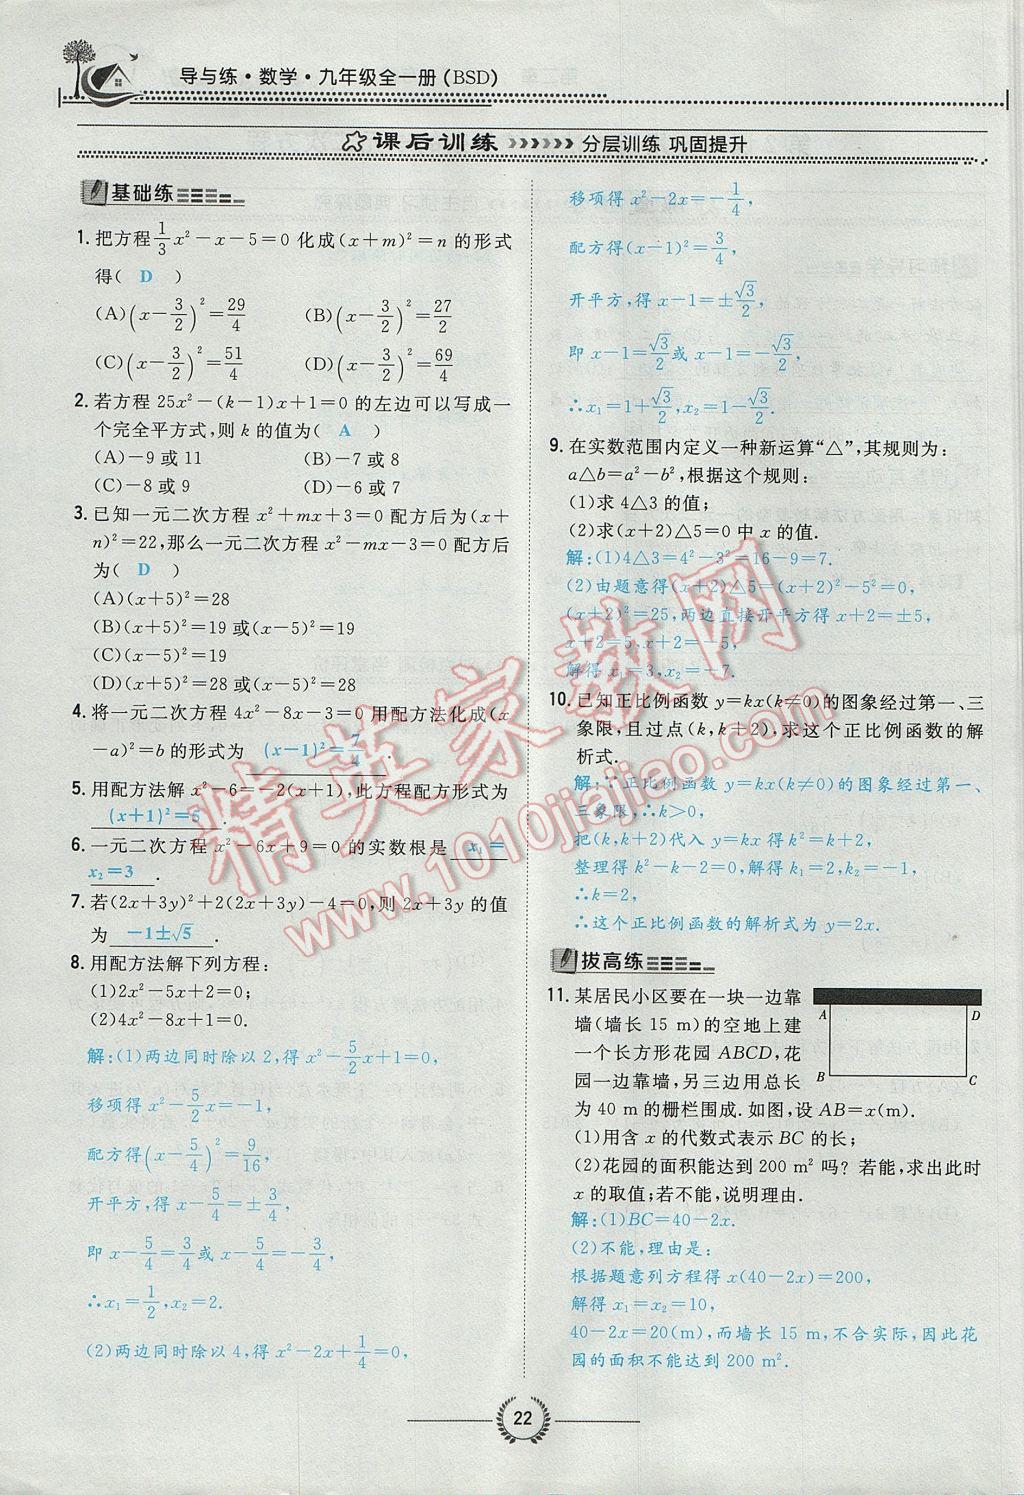 导与练·数学·九年级全一册(BSD)
课后训练 分层训练 巩固提升
基础练
1. 把方程1/3x²-x-5=0 化成(x+m)²=n 的形式
得( D )
(A)(x-3/2)²=29/4 (B)(x-3/2)²=27/2
(C)(x-3/2)²=51/4 (D)(x-3/2)²=69/4
2. 若方程 25x²-(k-1)x+1=0 的左边可以写成一
个完全平方式,则 k 的值为( A )
(A)-9 或 11 (B)-7 或 8
(C)-8 或 9 (D)-6 或 7
3. 已知一元二次方程 x²+mx+3=0 配方后为(x+
n)²=22,那么一元二次方程 x²-mx-3=0 配方后
为( D )
(A)(x+5)²=28
(B)(x+5)²=19 或(x-5)²=19
(C)(x-5)²=19
(D)(x+5)²=28 或(x-5)²=28
4. 将一元二次方程 4x²-8x-3=0 用配方法化成(x
-a)²=b 的形式为 (x-1)²=7/4 .
5. 用配方法解 x²-6=-2(x+1),此方程配方形式为
(x+1)²=5 .
6. 一元二次方程 x²-6x+9=0 的实数根是 x₁=
x₂=3 .
7. 若(2x+3y)²+2(2x+3y)-4=0,则 2x+3y 的值
为 -1±√5 .
8. 用配方法解下列方程:
(1)2x²-5x+2=0;
(2)4x²-8x+1=0.
解:(1)两边同时除以 2,得 x²-5/2x+1=0,
移项得 x²-5/2x=-1,
配方得(x-5/4)²=9/16,
开平方,得 x-5/4=±3/4,
即 x-5/4=3/4或 x-5/4=-3/4,
∴x₁=1/2,x₂=2.
(2)两边同时除以 4,得 x²-2x+1/4=0,
移项得 x²-2x=-1/4,
配方得(x-1)²=3/4,
开平方,得 x-1=±√3/2,
即 x-1=√3/2或 x-1=-√3/2,
∴x₁=1+√3/2,x₂=1-√3/2.
9. 在实数范围内定义一种新运算“△”,其规则为:
a△b=a²-b²,根据这个规则:
(1)求 4△3 的值;
(2)求(x+2)△5=0 中 x 的值.
解:(1)4△3=4²-3²=16-9=7.
(2)由题意得(x+2)△5=(x+2)²-5²=0,
(x+2)²=25,两边直接开平方得 x+2=±5,
x+2=5,x+2=-5,
解得 x₁=3,x₂=-7.
10. 已知正比例函数 y=kx(k≠0)的图象经过第一、三
象限,且过点(k,k+2),求这个正比例函数的解
析式.
解:∵正比例函数 y=kx(k≠0)的图象经过第一、
三象限,∴k>0,
把(k,k+2)代入 y=kx 得 k²=k+2,
整理得 k²-k-2=0,解得 k₁=2,k₂=-1,
∴k=2,
∴这个正比例函数的解析式为 y=2x.
拔高练
11. 某居民小区要在一块一边靠
墙(墙长 15 m)的空地上建
一个长方形花园 ABCD,花
园一边靠墙,另三边用总长
为 40 m 的栅栏围成.如图,设 AB=x(m).
A D
B C
(1)用含 x 的代数式表示 BC 的长;
(2)花园的面积能达到 200 m² 吗? 若能,求出此时
x 的取值;若不能,说明理由.
解:(1)BC=40-2x.
(2)不能,理由是:
根据题意列方程得 x(40-2x)=200,
解得 x₁=x₂=10,
40-2x=20(m),而墙长 15 m,不合实际,因此花
园的面积不能达到 200 m².
22
精英家教网
www.1010jiajiao.com